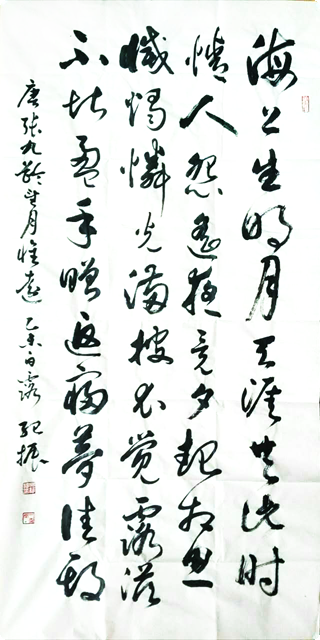 海上生明月天涯共此时
情人怨遥夜竟夕起相思
滅燭憐光满披衣覺露滋
不堪盈手贈还寢夢佳期
唐张九龄望月怀远 乙未白露 纪振